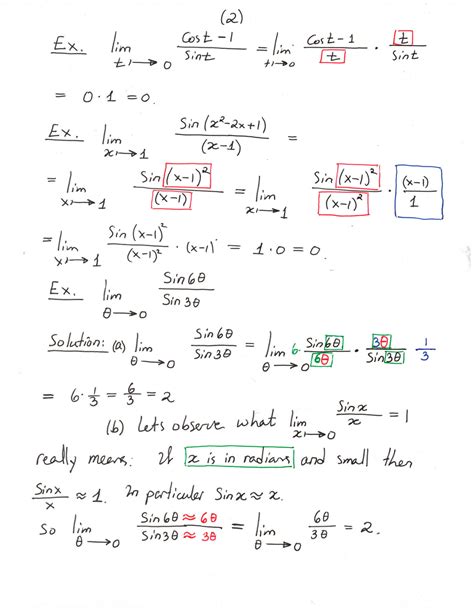 (2)
Ex. lim t→0 (cost-1)/(sint) = lim t→0 (cost-1)/t · t/(sint)
= 0·1 = 0.
Ex. lim x→1 Sin(x²-2x+1)/(x-1) =
= lim x→1 Sin(x-1)²/(x-1) = lim x→1 Sin(x-1)²/(x-1)² · (x-1)/1
= lim x→1 Sin(x-1)²/(x-1)² · (x-1) = 1·0 = 0.
Ex. lim θ→0 Sin6θ/Sin3θ
Solution: (a) lim θ→0 Sin6θ/Sin3θ = lim θ→0 6 Sin6θ/6θ · 3θ/Sin3θ 1/3
= 6·1/3 = 6/3 = 2
(b) Lets observe what lim x→0 Sinx/x = 1
really means: If x is in radians and small then
Sinx/x ≈ 1. In particular Sinx ≈ x.
So lim θ→0 Sin6θ≈6θ/Sin3θ≈3θ = lim θ→0 6θ/3θ = 2.